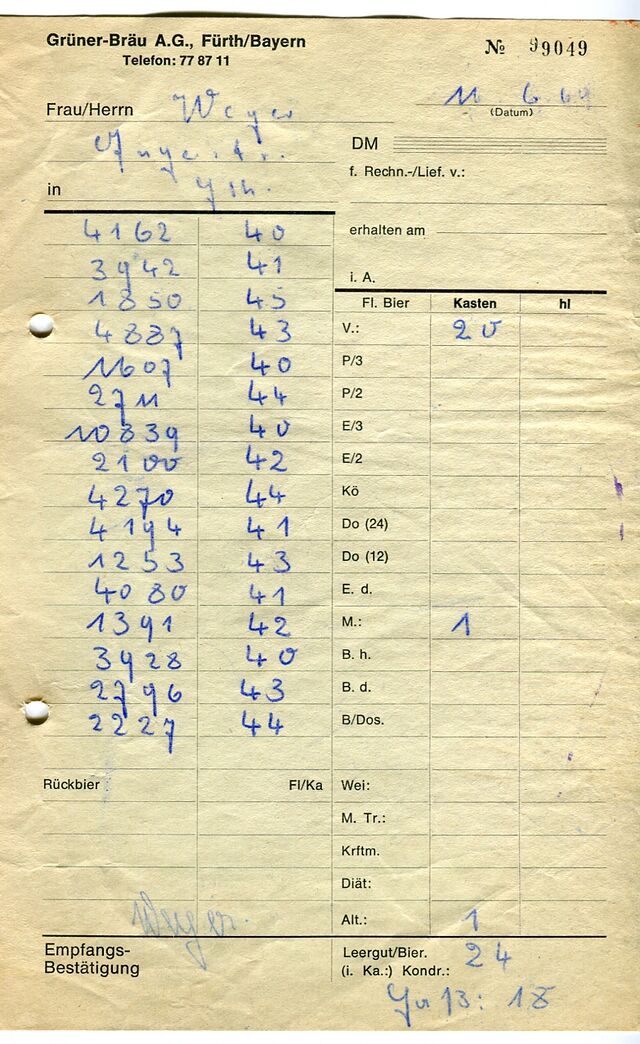 Grüner-Bräu A.G., Fürth/Bayern
Telefon: 77 87 11
№ 99049
Frau/Herrn Weyer
11 6 69
(Datum)
DM
f. Rechn.-/Lief. v.:
in
erhalten am
i. A.
4162 40
3942 41
1850 45
4887 43
1607 40
2711 44
10839 40
2100 42
4270 44
4194 41
1253 43
4080 41
1391 42
3928 40
2796 43
2227 44
Rückbier : Fl/Ka
Fl. Bier Kasten hl
V.: 20
P/3
P/2
E/3
E/2
Kö
Do (24)
Do (12)
E. d.
M.: 1
B. h.
B. d.
B/Dos.
Wei:
M. Tr.:
Krftm.
Diät:
Alt.: 1
Weyer.
Empfangs-
Bestätigung
Leergut/Bier. 24
(i. Ka.:) Kondr.:
18